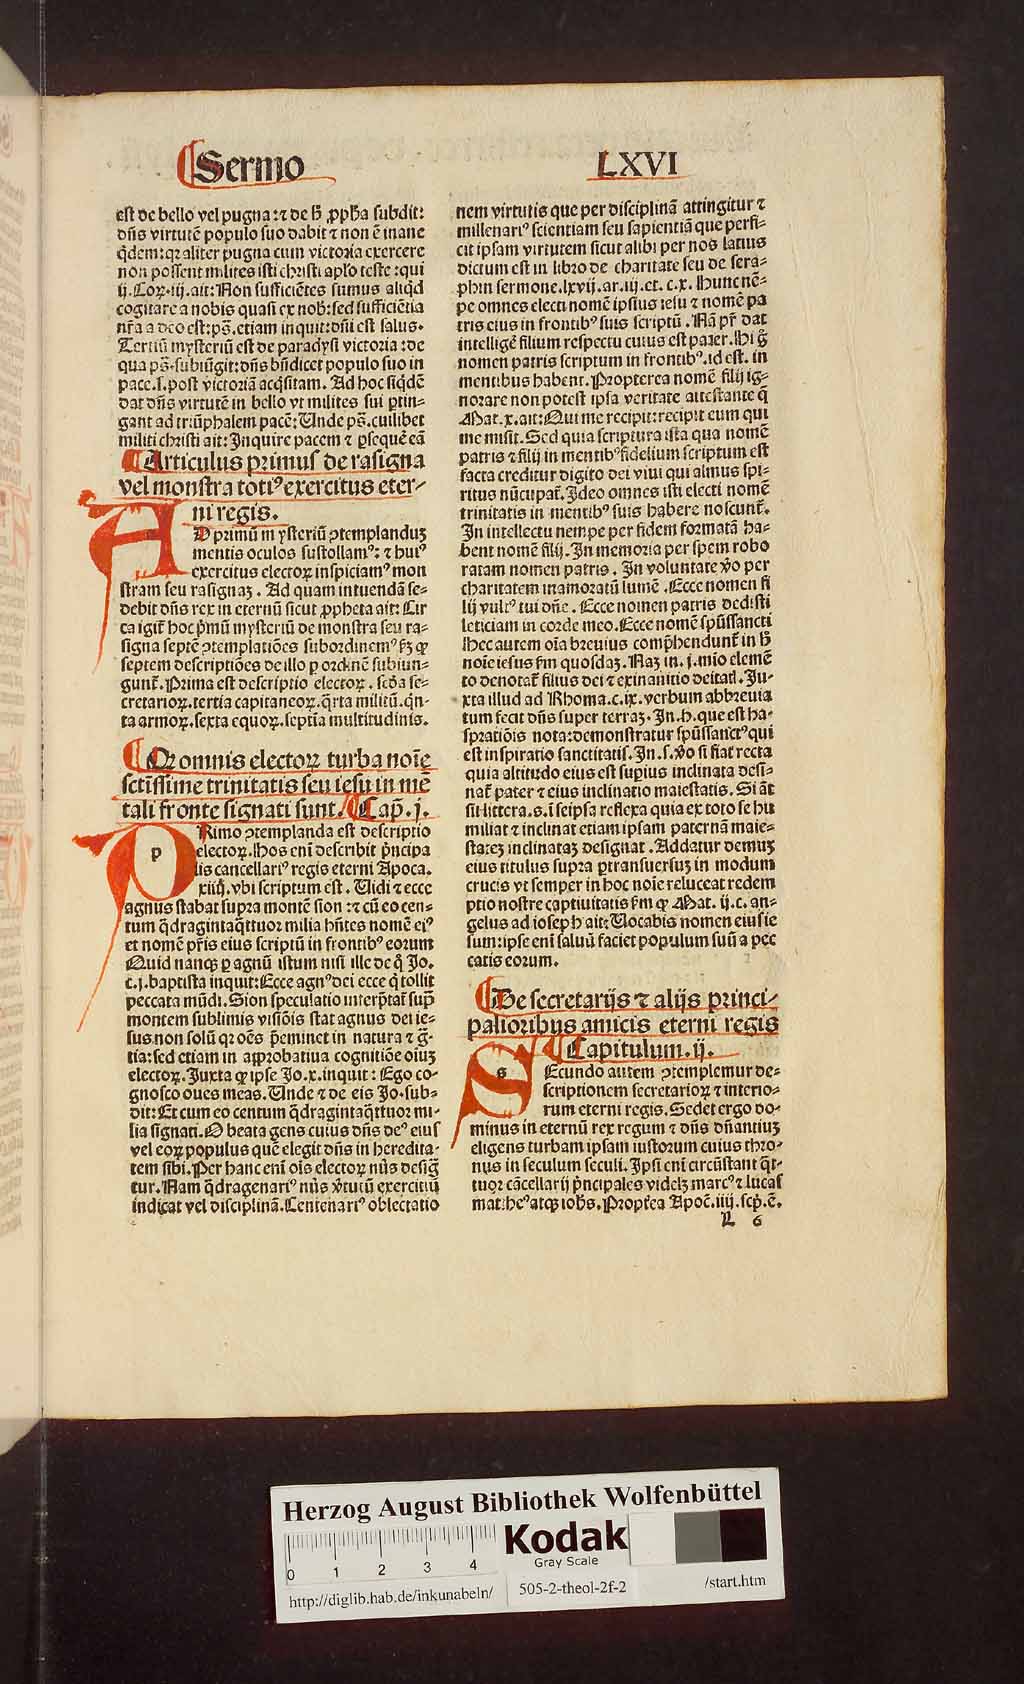 Sermo
LXVI
est de bello vel pugna: ⁊ de h̄ ꝓpħa subdit:
dn̄s virtutē populo suo dabit ⁊ non ē inane
q̄dem: qꝛ aliter pugna cum victoria exercere
non possent milites isti christi apl̄o teste: qui
ij. Coꝝ. iij. ait: Non sufficiētes sumus aliq̄d
cogitare a nobis quasi ex nob̄: sed sufficiētia
nr̄a a deo est: ps̄. etiam inquit: dn̄i est salus.
Tertiū mysteriū est de paradysi victoria: de
qua ps̄. subiūgit: dn̄s bn̄dicet populo suo in
pace. s. post victoriā acq̄sitam. Ad hoc siq̄dē
dat dn̄s virtutē in bello vt milites sui ꝑtin-
gant ad triūphalem pacē: Unde ps̄. cuilibet
militi christi ait: Inquire pacem ⁊ ꝑsequē eā
Articulus primus de rasigna
vel monstra totiꝰ exercitus eter-
ni regis.
AD primū mysteriū ꝯtemplanduꝫ
mentis oculos sustollamꝰ: ⁊ huiꝰ
exercitus electoꝝ inspiciamꝰ mon
stram seu rasignaꝫ. Ad quam intuendā se-
debit dn̄s rex in eternū sicut ꝓpheta ait: Cir
ca igit̄ hoc p̄mū mysteriū de monstra seu ra-
signa septē ꝯtemplatiōes subordinemꝰ ẜm ꝙ
septem descriptiōes de illo ꝑ ordinē subiun-
gunt̄. Prima est descriptio electoꝝ. sc̄da se-
cretarioꝝ. tertia capitaneoꝝ. q̄rta militū. q̄n-
ta armoꝝ. sexta equoꝝ. septīa multitudinis.
Qꝛ omnis electoꝝ turba noīe
sctīssime trinitatis seu iesu in mē
tali fronte signati sunt. Cap̄. j.
PRimo ꝯtemplanda est descriptio
electoꝝ. Hos enī describit p̄ncipa
lis cancellariꝰ regis eterni Apoca.
xiiij. vbi scriptum est. Uidi ⁊ ecce
agnus stabat supra montē sion: ⁊ cū eo cen-
tum q̄dragintaq̄ttuor milia hn̄tes nomē eiꝰ
et nomē pr̄is eius scriptū in frontibꝰ eorum
Quid nanqꝫ ꝑ agnū istum nisi ille de q̄ Jo.
c. j. baptista inquit: Ecce agnꝰ dei ecce q̄ tollit
peccata mūdi. Sion speculatio interp̄tat̄ sup̄
montem sublimis visiōis stat agnus dei ie-
sus non solū qꝛ oēs p̄eminet in natura ⁊ gr̄-
tia: sed etiam in approbatiua cognitiōe oīuꝫ
electoꝝ. Juxta ꝙ ipse Jo. x. inquit: Ego co-
gnosco oues meas. Unde ⁊ de eis Jo. sub-
dit: Et cum eo centum q̄dragintaq̄ttuor mi-
lia signati. O beata gens cuius dn̄s deꝰ eius
vel eoꝝ populus quē elegit dn̄s in heredita-
tem sibi. Per hanc enī oīs electoꝝ nūs desiḡ
tur. Nam q̄dragenariꝰ nūs v̄tutū exercitiū
indicat vel disciplinā. Centenariꝰ oblectatio
nem virtutis que per disciplinā attingitur ⁊
millenariꝰ scientiam seu sapientiā que perfi-
cit ipsam virtutem sicut alibi per nos latius
dictum est in libro de charitate seu de sera-
phin sermone. lxvij. ar. iij. et. c. x. Hunc nē-
pe omnes electi nomē ipsius iesu ⁊ nomē pa
tris eius in frontibꝰ suis scriptū. Nā pr̄ dat
intelligē filium respectu cuius est pater. Hi g̊
nomen patris scriptum in frontibꝰ. id est. in
mentibus habent. Propterea nomē filij ig-
norare non potest ipsa veritate attestante q̄
Mat. x. ait: Qui me recipit: recipit eum qui
me misit. Sed quia scriptura ista qua nomē
patris ⁊ filij in mentibꝰ fidelium scriptum est
facta creditur digito dei viui qui almus spi-
ritus nūcupat̄. Ideo omnes isti electi nomē
trinitatis in mentibꝰ suis habere noscunt̄.
In intellectu nempe per fidem formatā ha-
bent nomē filij. In memoria per spem robo
ratam nomen patris. In voluntate v̊o per
charitatem inamoratū lumē. Ecce nomen fi
lij vultꝰ tui dn̄e. Ecce nomen patris dedisti
leticiam in corde meo. Ecce nomē spūssancti
Hec autem oīa breuius comp̄hendunt̄ in h̄
noīe iesus ẜm quosdaꝫ. Naꝫ in. j. mīo elemē
to denotat̄ filius dei ⁊ exinanitio deitatī. Ju-
xta illud ad Rhoma. c. ix. verbum abbreuia
tum fecit dn̄s super terraꝫ. In. h. que est ha-
spratiōis nota: demonstratur spūssanctꝰ qui
est inspiratio sanctitatis. In. s. v̊o si fiat recta
quia altitudo eius est supius inclinata desī-
nat̄ pater ⁊ eius inclinatio maiestatis. Si āt
sit littera. s. ī seipsa reflexa quia ex toto se hu
miliat ⁊ inclinat etiam ipsam paternā maie-
stateꝫ inclinataꝫ designat. Addatur demuꝫ
eius titulus supra ꝑtransuersuꝫ in modum
crucis vt semper in hoc noīe reluceat redem
ptio nostre captiuitatis ẜm ꝙ Mat. ij. c. an-
gelus ad ioseph ait: Uocabis nomen eius ie
sum: ipse enī saluū faciet populum suū a pec
catis eorum.
De secretarijs ⁊ alijs princi-
palioribus amicis eterni regis
Capitulum. ij.
SEcundo autem ꝯtemplemur de-
scriptionem secretarioꝝ ⁊ interio-
rum eterni regis. Sedet ergo do-
minus in eternū rex regum ⁊ dn̄s dn̄antiuꝫ
eligens turbam ipsam iustorum cuius thro-
nus in seculum seculi. Ipsi enī circūstant q̄t-
tuor cācellarij p̄ncipales videlꝫ marcꝰ ⁊ lucas
mat: heꝰ atqꝫ ioħs. Propt̄ea Apoc̄. iiij. scp̄. ē.
L 6
Herzog August Bibliothek Wolfenbüttel
0 1 2 3 4
Kodak
Gray Scale
http://diglib.hab.de/inkunabeln/
505-2-theol-2f-2
/start.htm